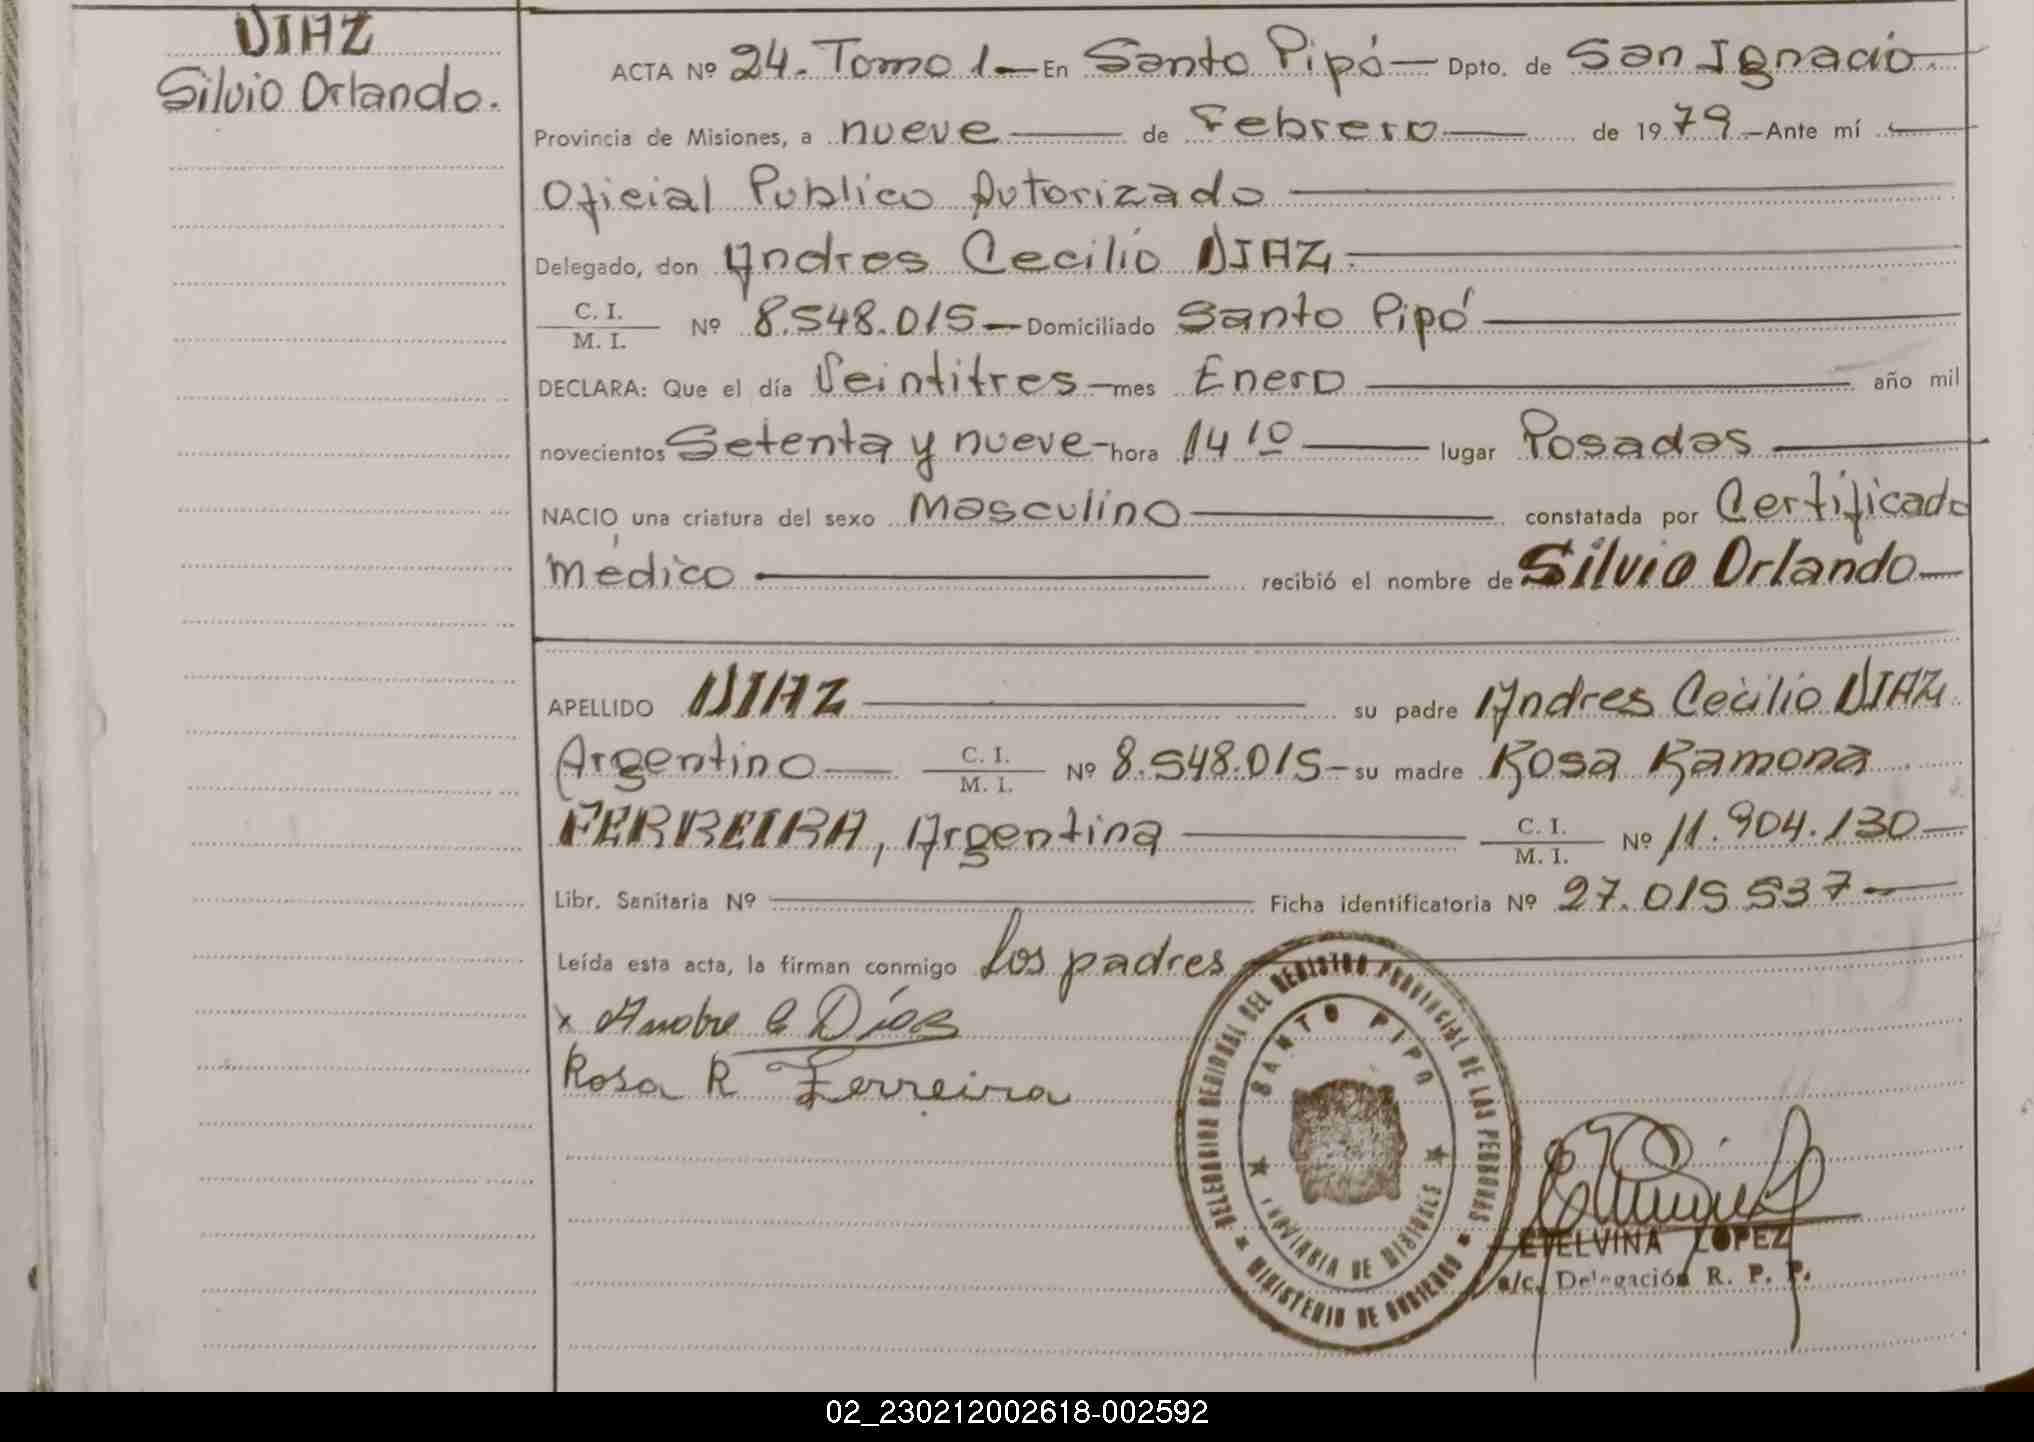 DIAZ
Silvio Orlando.
ACTA Nº 24. Tomo 1 — En Santo Pipó — Dpto. de San Ignacio.
Provincia de Misiones, a nueve — de Febrero — de 1979 — Ante mí —
Oficial Publico Autorizado —
Delegado, don Andres Cecilio DIAZ. —
C. I.
M. I. Nº 8.548.015 — Domiciliado Santo Pipó —
DECLARA: Que el día Veintitres — mes Enero — año mil
novecientos Setenta y nueve — hora 14 10 — lugar Posadas —
NACIO una criatura del sexo Masculino — constatada por Certificado
Médico — recibió el nombre de Silvio Orlando —
APELLIDO DIAZ — su padre Andres Cecilio DIAZ
Argentino — C. I.
M. I. Nº 8.548.015 — su madre Rosa Ramona
FERREIRA, Argentina — C. I.
M. I. Nº 11.904.130 —
Libr. Sanitaria Nº — Ficha identificatoria Nº 27.015 537 —
Leída esta acta, la firman conmigo los padres —
x Andre C Díaz
Rosa R Ferreira
DELEGACION REGIONAL DEL REGISTRO PROVINCIAL DE LAS PERSONAS
SANTO PIPO
PROVINCIA DE MISIONES
MINISTERIO DE GOBIERNO
ETELVINA LOPEZ
a/c. Delegación R. P. P.
02_230212002618-002592